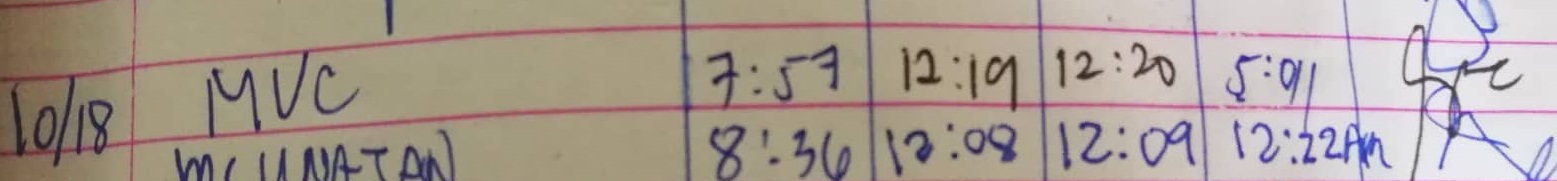 10/18 MVC 7:57 12:19 12:20 5:01
8:36 12:08 12:09 12:22Am